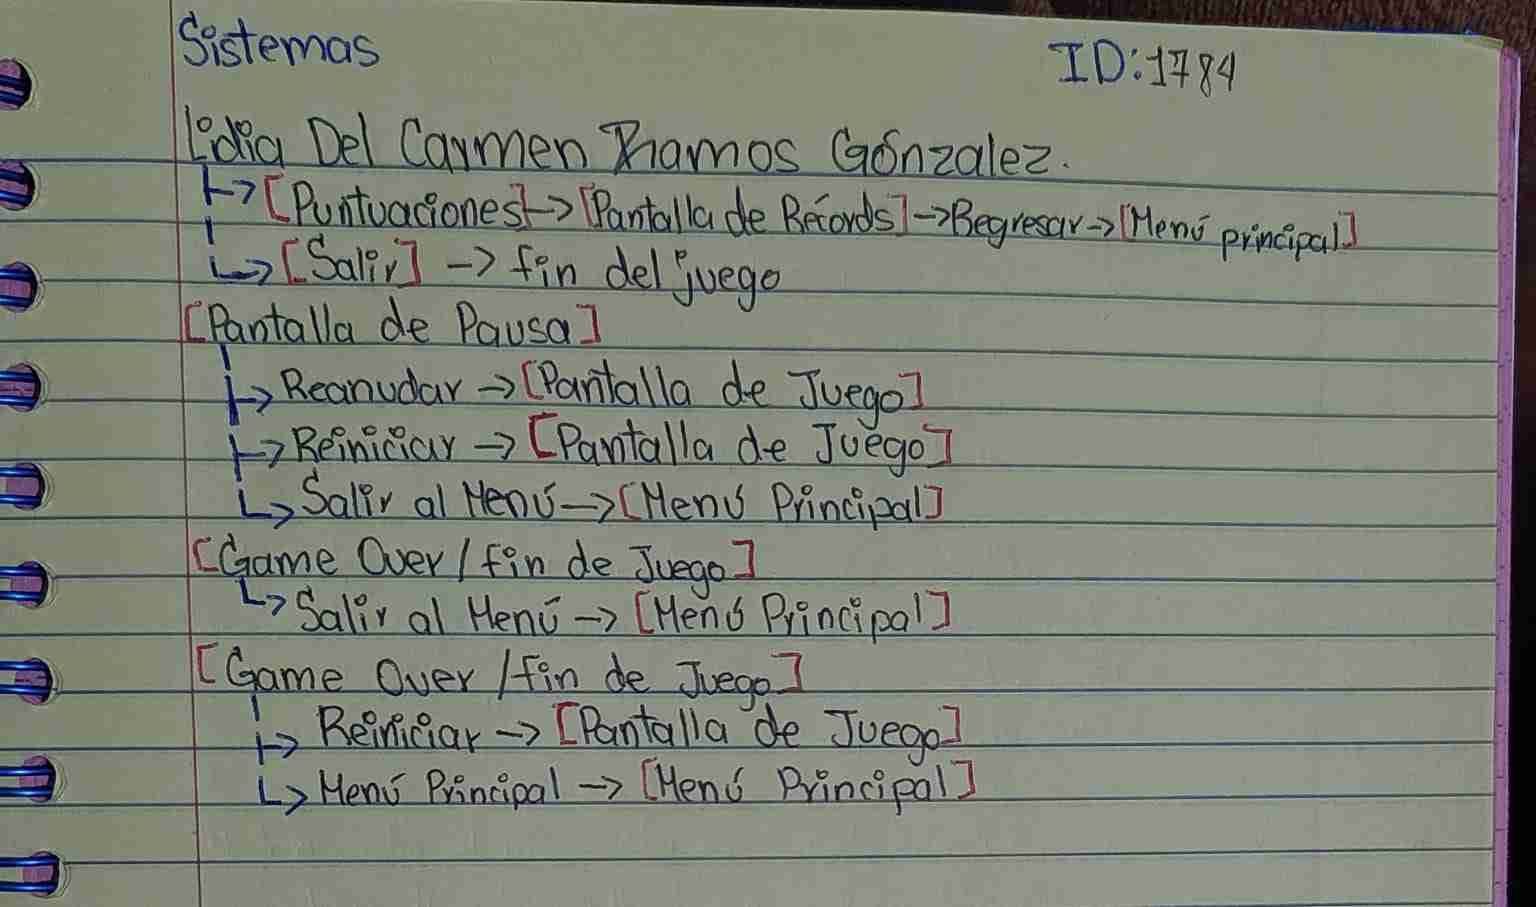 Sistemas ID:1784
Lidia Del Carmen Ramos Gónzalez.
├→[Puntuaciones]→[Pantalla de Récords]→Regresar→[Menú principal]
└→[Salir] → fin del juego
[Pantalla de Pausa]
├→Reanudar→[Pantalla de Juego]
├→Reiniciar→[Pantalla de Juego]
└→Salir al Menú→[Menú Principal]
[Game Over/fin de Juego]
└→Salir al Menú→[Menú Principal]
[Game Over/fin de Juego]
├→Reiniciar→[Pantalla de Juego]
└→Menú Principal→[Menú Principal]